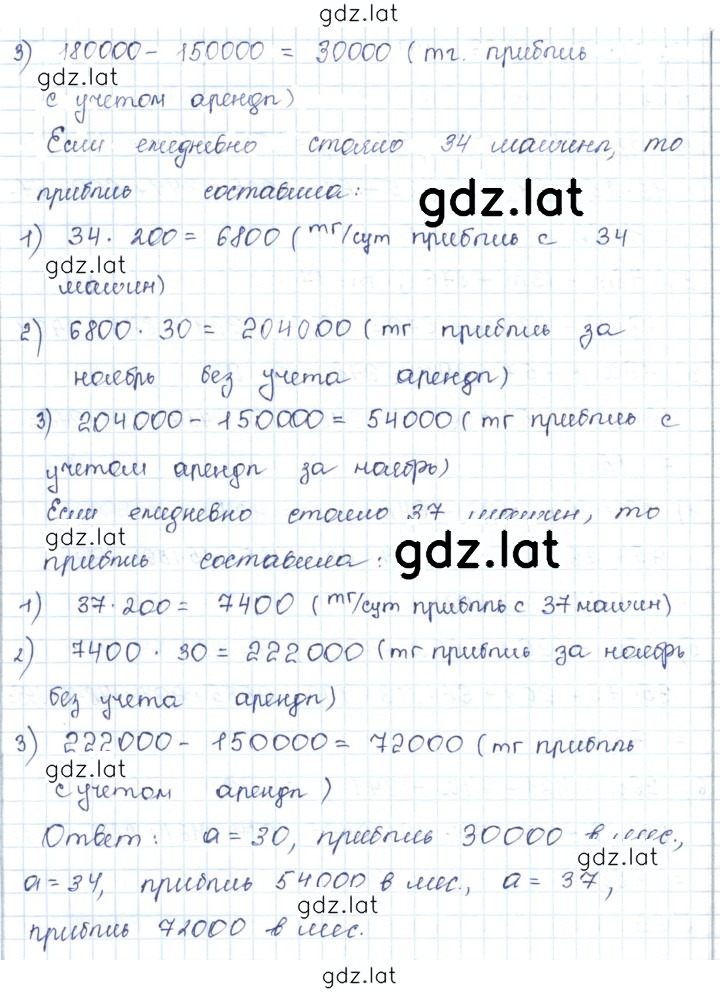 gdz.lat
3) 180000 - 150000 = 30000 (тг. прибыль
gdz.lat
с учетом аренды)
Если ежедневно стояло 34 машины, то
прибыль составила:
gdz.lat
1) 34 · 200 = 6800 (тг/сут прибыль с 34
gdz.lat
машин)
2) 6800 · 30 = 204000 (тг прибыль за
ноябрь без учета аренды)
3) 204000 - 150000 = 54000 (тг прибыль с
учетом аренды за ноябрь)
Если ежедневно стояло 37 машин, то
gdz.lat
прибыль составила:
gdz.lat
1) 37 · 200 = 7400 (тг/сут прибыль с 37 машин)
2) 7400 · 30 = 222000 (тг прибыль за ноябрь
без учета аренды)
3) 222000 - 150000 = 72000 (тг прибыль
gdz.lat
с учетом аренды)
Ответ: a = 30, прибыль 30000 в мес.,
gdz.lat
a = 34, прибыль 54000 в мес., a = 37,
gdz.lat
прибыль 72000 в мес.
gdz.lat